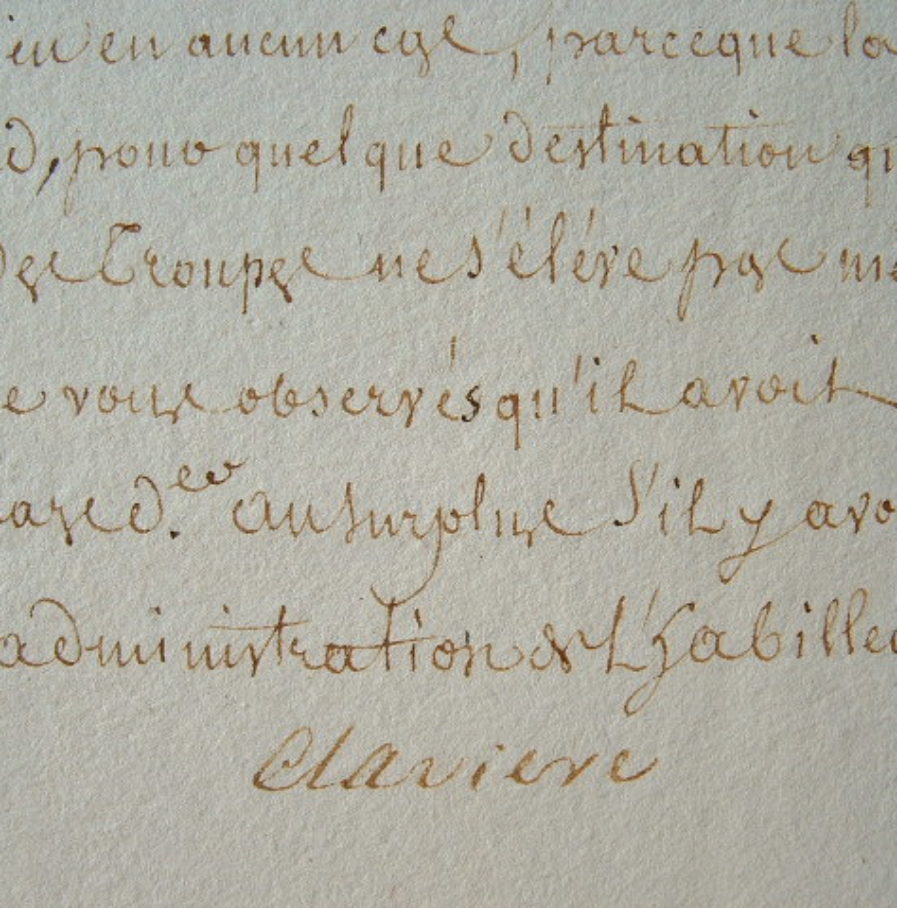 lieu en aucun cas, parceque la
d, pour quelque destination qu
des Troupes ne s'éléve pas
e vous observés qu'il avoit
d.er au surplus s'il y avo
administration de L'habille
Claviere